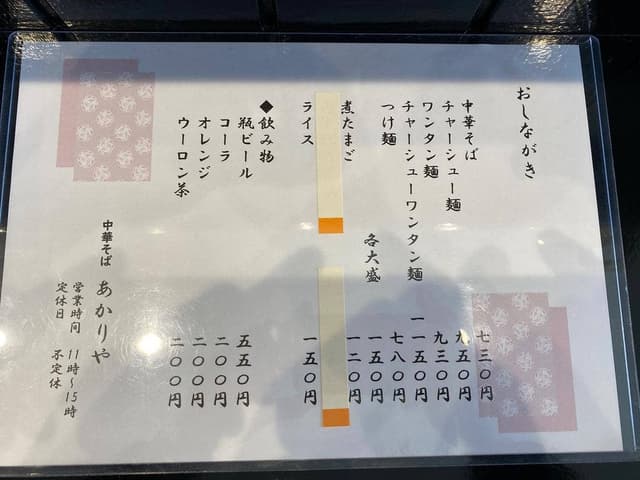 おしながき
中華そば 七三〇円
チャーシュー麺 九五〇円
ワンタン麺 九三〇円
チャーシューワンタン麺 一一五〇円
つけ麺 七八〇円
各大盛 一五〇円
煮たまご 一二〇円
ライス 一五〇円
◆飲み物
瓶ビール 五五〇円
コーラ 二〇〇円
オレンジ 二〇〇円
ウーロン茶 二〇〇円
中華そば あかりや
営業時間 11時〜15時
定休日 不定休